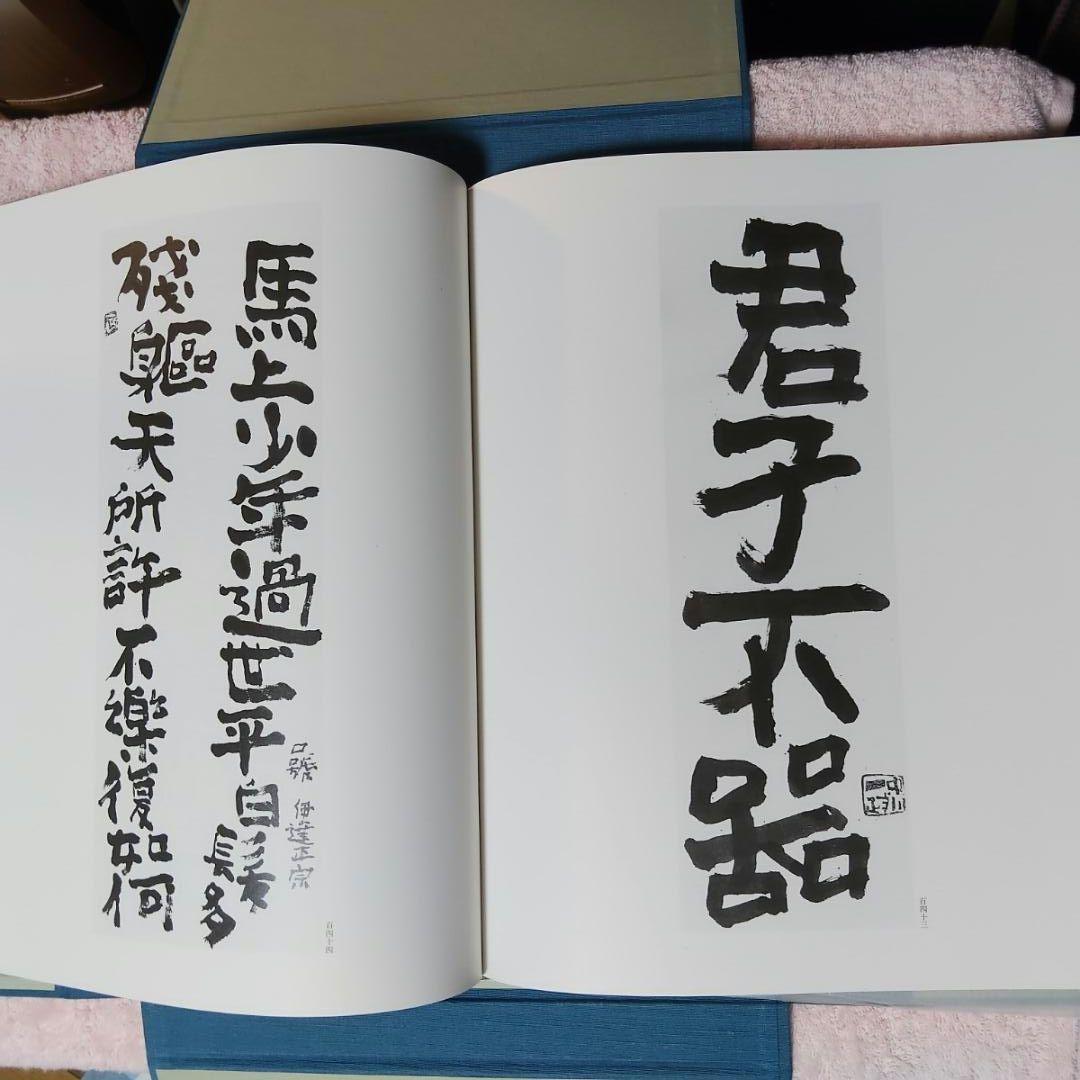 君子不器
百四十三
口號 伊達正宗
馬上少年過世平白髪多
殘軀天所許不樂復如何
百四十四